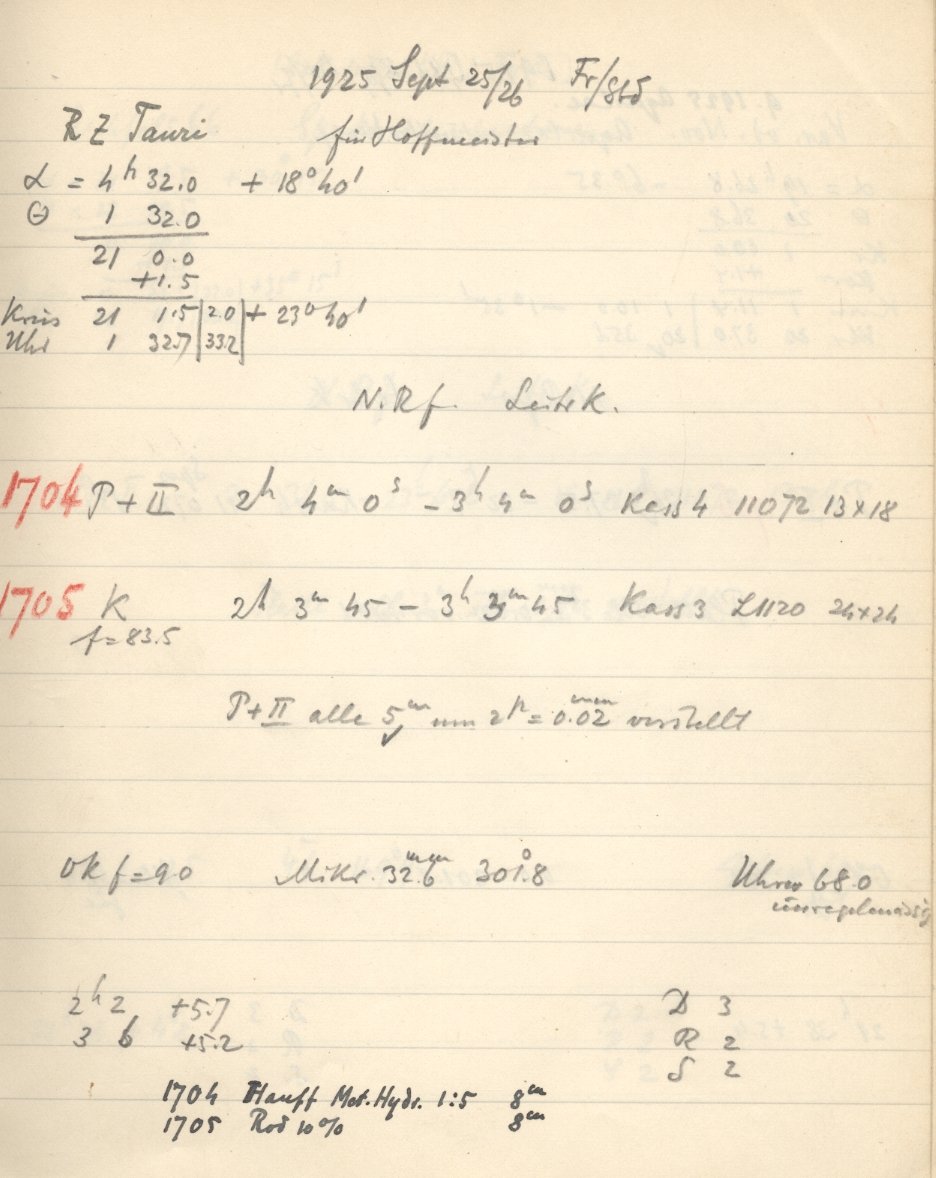 1925 Sept 25/26 Fr/Std
RZ Tauri für Hoffmeister
α = 4h 32.0 + 18° 40'
Θ 1 32.0
21 0.0
+1.5
Kreis 21 1.5 | 2.0 | + 23° 40'
Uhr 1 32.7 | 33.2 |
N.Rf. Leitrk.
1704 P+II 2h 4m 0s – 3h 4m 0s Kass 4 11072 13×18
1705 K 2h 3m 45 – 3h 3m 45 Kass 3 L1120 24×24
f=83.5
P+II alle 5m um 2p = 0.02mm verstellt
Ok f=90 Mikr. 32.6mm 301.8° Uhren 68.0
unregelmässig
2h 2 +5.7 D 3
3 6 +5.2 R 2
S 2
1704 Hauff Met.Hydr. 1:5 8m
1705 Rod 10% 8m